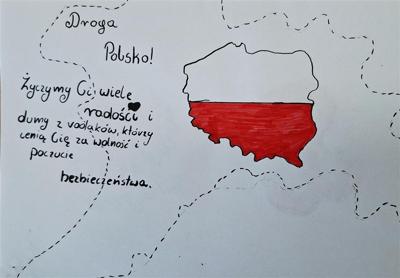 Droga
Polsko!
Życzymy Ci wiele
radości i
dumy z rodaków, którzy
cenią Cię za wolność i
poczucie
bezpieczeństwa.